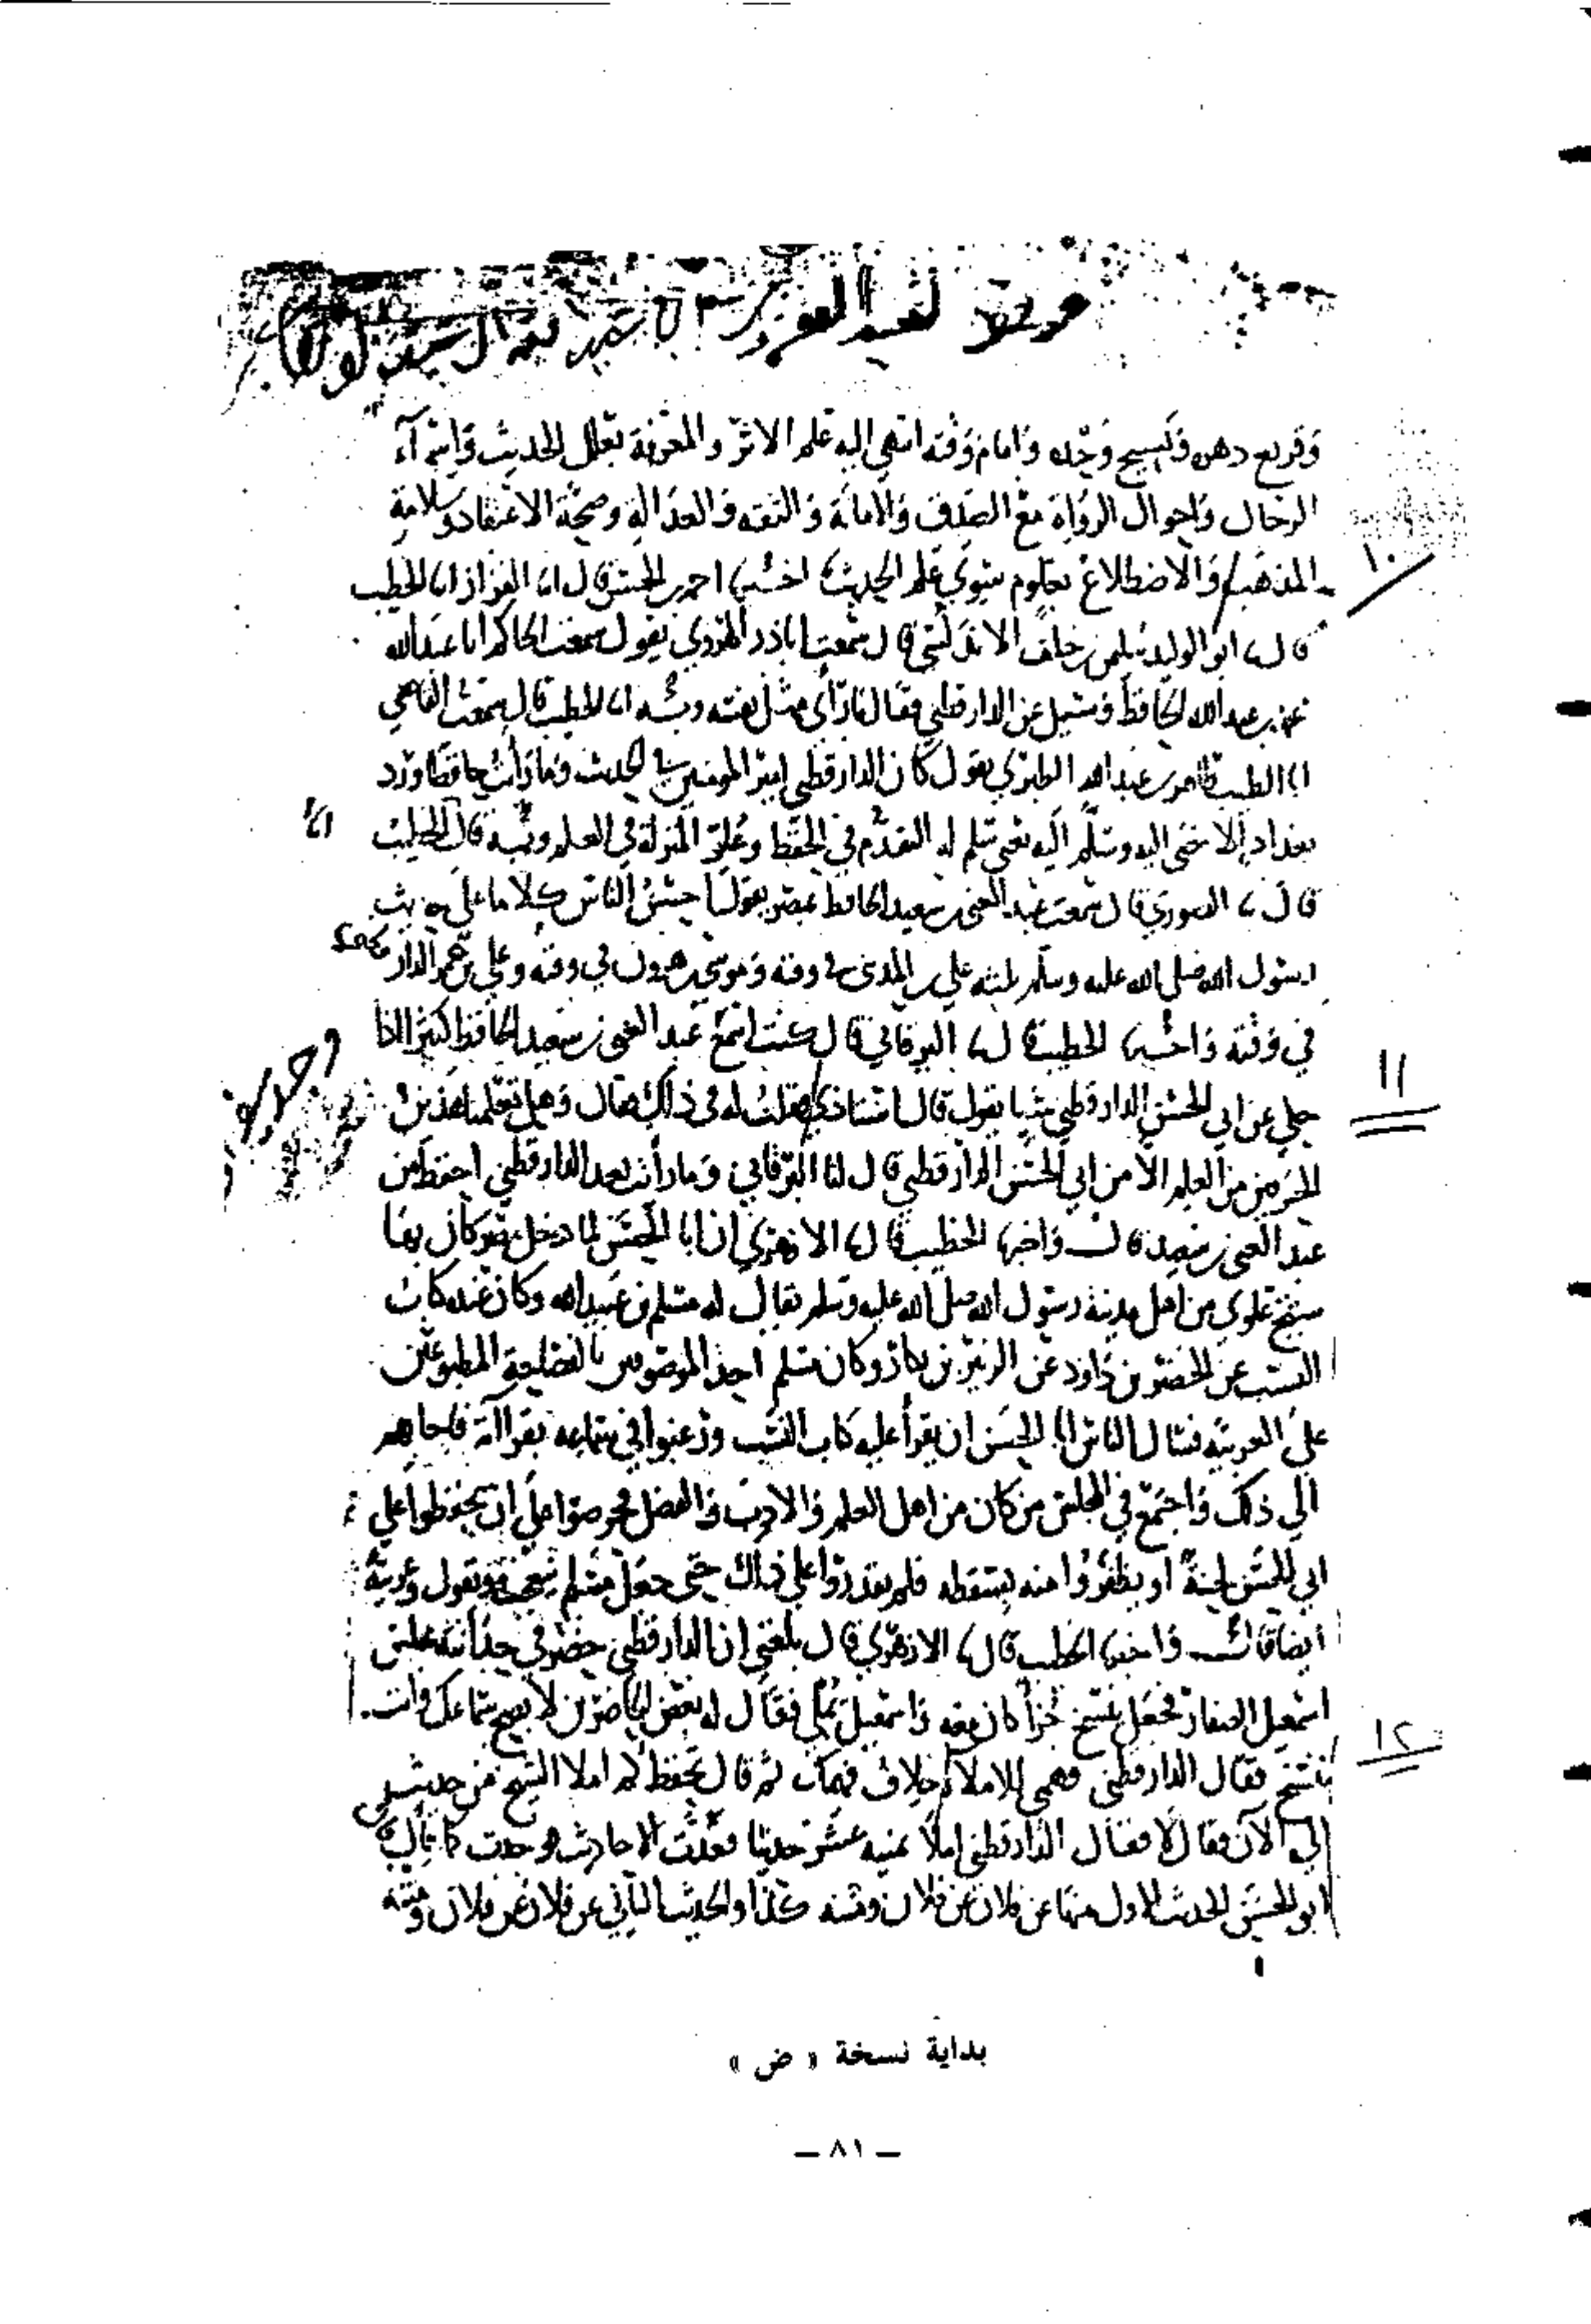 وقريع دهره ونسيج وحده وامام وقته انتهى اليه علم الاثر والمعرفة بعلل الحديث واسماء
الرجال واحوال الرواة مع الصدق والامانة والثقة والعدالة وصحة الاعتقاد وسلامة
المذهب والاضطلاع بعلوم سوى علم الحديث احمد الحسن قال انا القزاز انا الخطيب
قال ابو الوليد سليمن بن خلف الاندلسي قال سمعت ابا ذر الهروي يقول سمعت الحاكم ابا عبدالله
محمد بن عبد الله الحافظ وسئل عن الدارقطني فقال ما راى مثل نفسه وبه انا الخطيب قال سمعت القاضي
ابا الطيب طاهر بن عبد الله الطبري يقول كان الدارقطني امير المومنين في الحديث وما رايت حافظا ورد
بغداد الا مضى اليه وسلم له يعني سلم له التقدم في الحفظ وعلو المنزلة في العلم وبه قال الخطيب
قال الصوري قال سمعت عبد الغني بن سعيد الحافظ بمصر يقول احسن الناس كلاما على حديث
رسول الله صلى الله عليه وسلم ثلثة علي بن المديني في وقته وموسى بن هرون في وقته وعلي بن عمر الدار
في وقته الخطيب قال البرقاني قال كنت اسمع عبد الغني بن سعيد الحافظ كثيرا اذا
حكى عن ابي الحسن الدارقطني شيا يقول قال استاذي فقلت له في ذلك فقال وهل تعلمنا هذين
الحرفين من العلم الا من ابي الحسن الدارقطني قال لنا البرقاني وما رأيت بعد الدارقطني احفظ من
عبد الغني بن سعيد قال واخبرنا الخطيب قال الازهري ان ابا الحسن لما دخل مصر كان بها
شيخ علوي من اهل مدينة رسول الله صلى الله عليه وسلم يقال له مسلم بن عبيد الله وكان عنده كتاب
النسب عن الخضر بن داود عن الزبير بن بكار وكان مسلم احد الموصوفين بالفصاحة المطبوعين
على العربية فسال الناس ابا الحسن ان يقرأ عليه كتاب النسب ورغبوا في سماعه بقراته فاجابهم
الى ذلك واجتمع في المجلس من كان من اهل العلم والادب والفضل فحرصوا على ان يحفظوا على
ابي الحسن لحنة او يظفروا منه بسقطة فلم يقدروا على ذلك حتى جعل مسلم يتعجب ويقول وعربية
ايضا قال واخبرنا الخطيب قال الازهري قال بلغني ان الدارقطني حضر في حداثته مجلس
اسمعيل الصفار فجعل ينسخ جزأ كان معه واسمعيل يملي فقال له بعض الحاضرين لا يصح سماعك وانت
تنسخ فقال الدارقطني فهمي للاملاء خلاف فهمك ثم قال تحفظ كم املا الشيخ من حديث
الى الآن فقال لا فقال الدارقطني املا ثمنية عشر حديثا فعدت الاحاديث فوجدت كما قال
ابو الحسن الحديث الاول منها عن فلان عن فلان ومتنه كذا والحديث الثاني عن فلان عن فلان ومتنه
١٠
١١
١٢
بداية نسخة « ض »
— ٨١ —